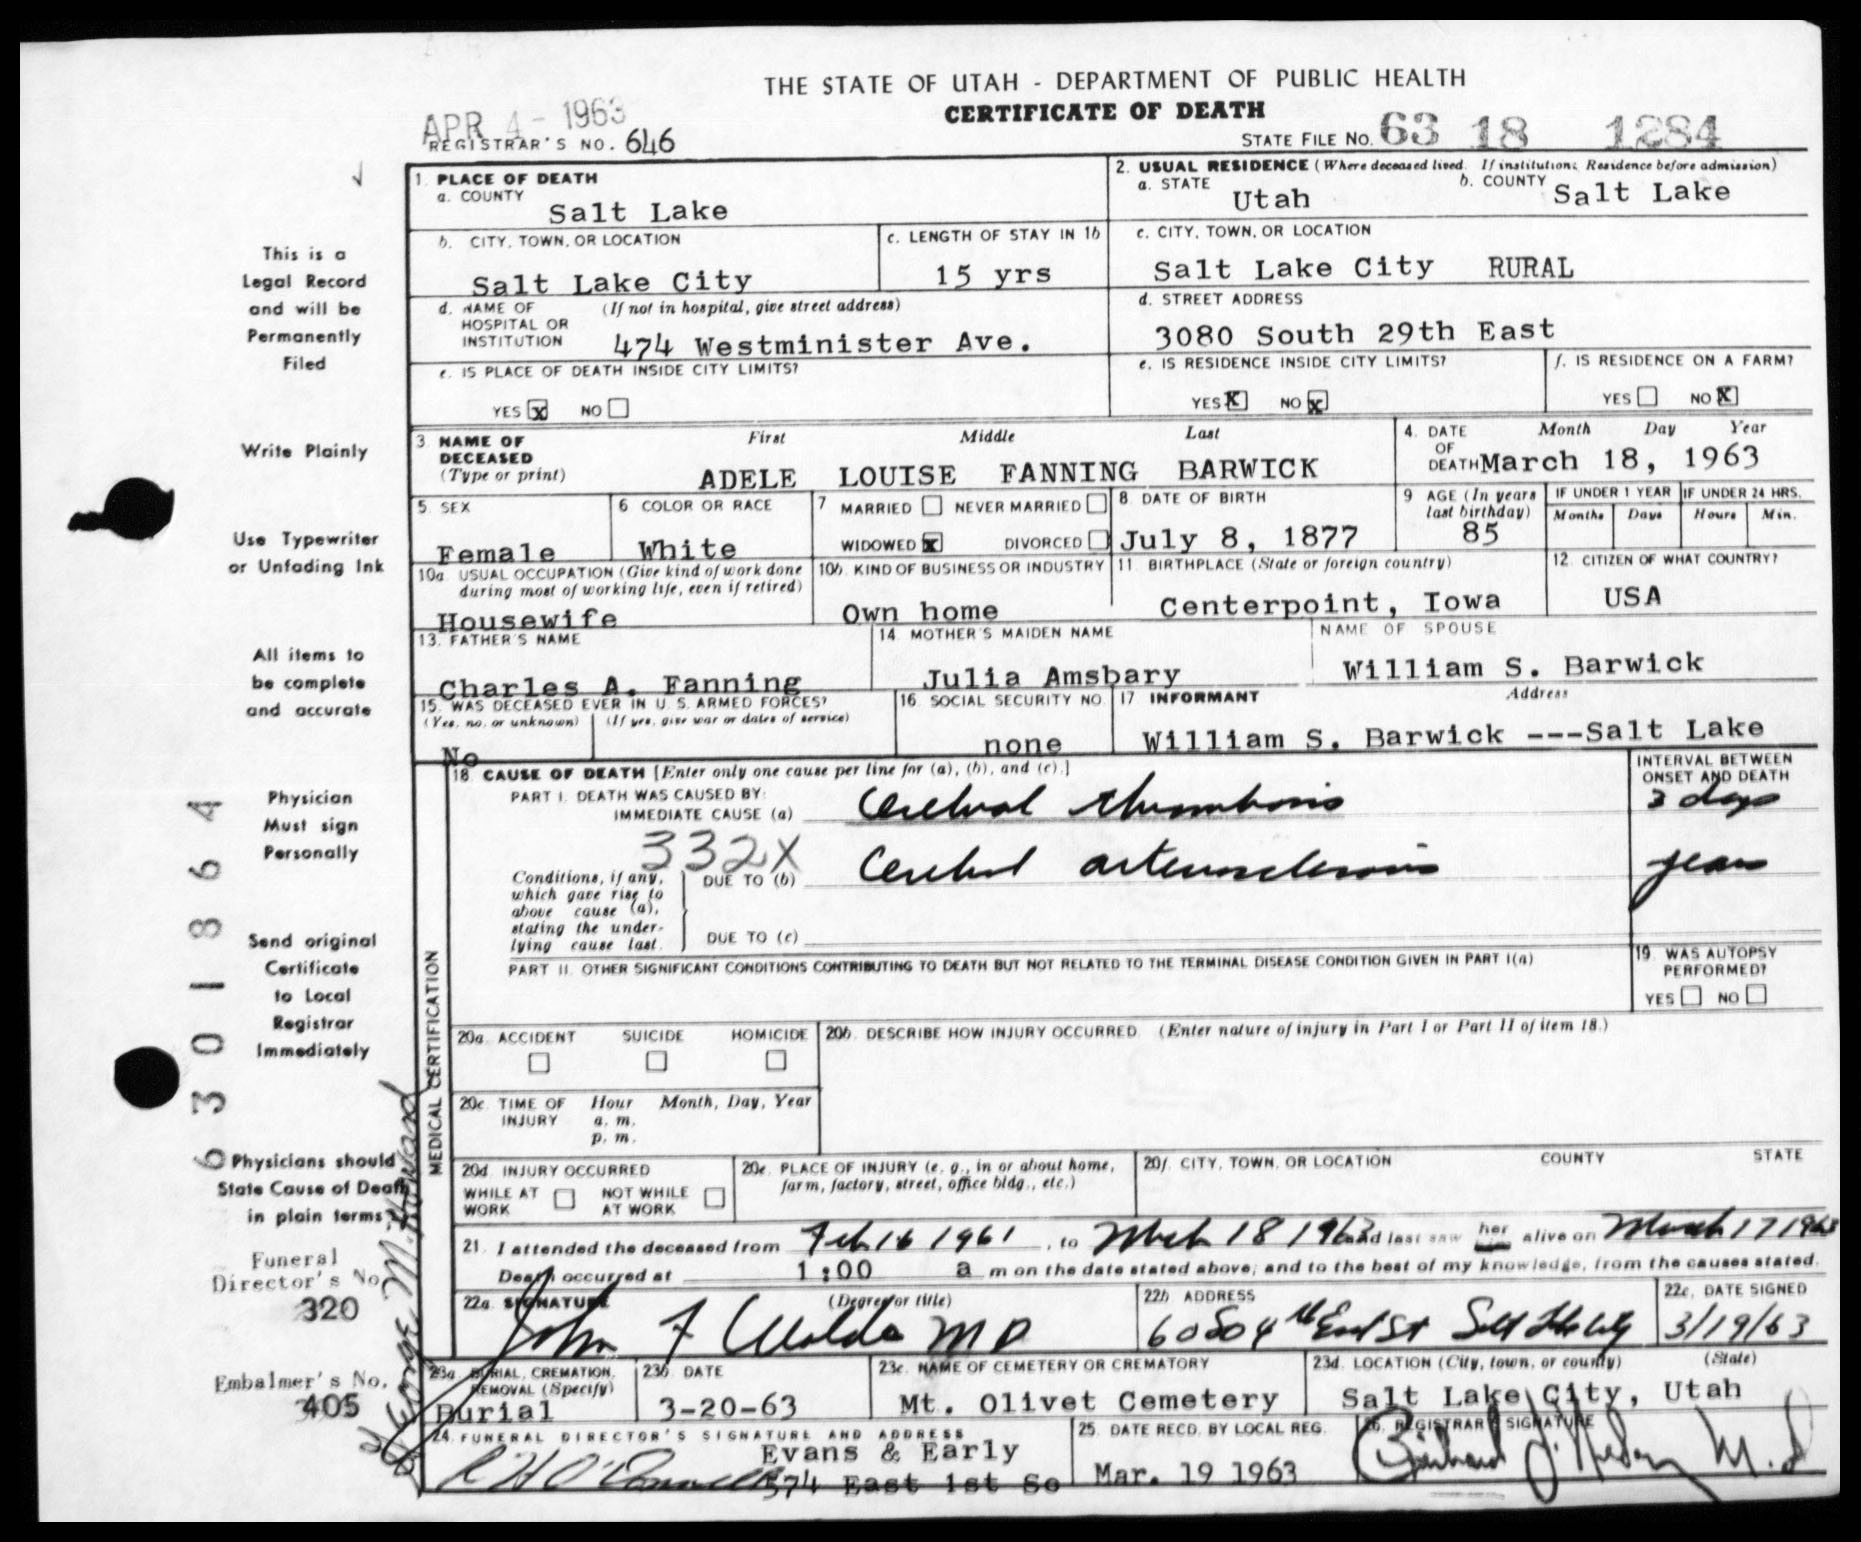 THE STATE OF UTAH - DEPARTMENT OF PUBLIC HEALTH
CERTIFICATE OF DEATH
APR 4 - 1963
REGISTRAR'S NO. 646
STATE FILE NO. 63 18 1284
1. PLACE OF DEATH
a. COUNTY
Salt Lake
2. USUAL RESIDENCE (Where deceased lived. If institution: Residence before admission)
a. STATE
Utah
b. COUNTY
Salt Lake
b. CITY, TOWN, OR LOCATION
Salt Lake City
c. LENGTH OF STAY IN 1b
15 yrs
c. CITY, TOWN, OR LOCATION
Salt Lake City RURAL
d. NAME OF HOSPITAL OR INSTITUTION (If not in hospital, give street address)
474 Westminister Ave.
d. STREET ADDRESS
3080 South 29th East
e. IS PLACE OF DEATH INSIDE CITY LIMITS?
YES x NO
e. IS RESIDENCE INSIDE CITY LIMITS?
YES X NO x
f. IS RESIDENCE ON A FARM?
YES NO X
3. NAME OF DECEASED (Type or print)
First Middle Last
ADELE LOUISE FANNING BARWICK
4. DATE OF DEATH Month Day Year
March 18, 1963
5. SEX
Female
6 COLOR OR RACE
White
7 MARRIED NEVER MARRIED
WIDOWED x DIVORCED
8 DATE OF BIRTH
July 8, 1877
9 AGE (In years last birthday)
85
IF UNDER 1 YEAR
Months Days
IF UNDER 24 HRS.
Hours Min.
10a. USUAL OCCUPATION (Give kind of work done during most of working life, even if retired)
Housewife
10b. KIND OF BUSINESS OR INDUSTRY
Own home
11. BIRTHPLACE (State or foreign country)
Centerpoint, Iowa
12. CITIZEN OF WHAT COUNTRY?
USA
13. FATHER'S NAME
Charles A. Fanning
14. MOTHER'S MAIDEN NAME
Julia Amsbary
NAME OF SPOUSE
William S. Barwick
15. WAS DECEASED EVER IN U. S. ARMED FORCES?
(Yes, no, or unknown) (If yes, give war or dates of service)
No
16. SOCIAL SECURITY NO.
none
17 INFORMANT Address
William S. Barwick ---Salt Lake
MEDICAL CERTIFICATION
18. CAUSE OF DEATH [Enter only one cause per line for (a), (b), and (c).]
INTERVAL BETWEEN ONSET AND DEATH
PART I. DEATH WAS CAUSED BY:
IMMEDIATE CAUSE (a) Cerebral thrombosis
3 days
332X
Conditions, if any, which gave rise to above cause (a), stating the underlying cause last.
DUE TO (b) Cerebral arteriosclerosis
years
DUE TO (c)
PART II. OTHER SIGNIFICANT CONDITIONS CONTRIBUTING TO DEATH BUT NOT RELATED TO THE TERMINAL DISEASE CONDITION GIVEN IN PART I(a)
19. WAS AUTOPSY PERFORMED?
YES NO
20a. ACCIDENT SUICIDE HOMICIDE
20b. DESCRIBE HOW INJURY OCCURRED. (Enter nature of injury in Part I or Part II of item 18.)
20c. TIME OF INJURY Hour Month, Day, Year
a. m.
p. m.
20d. INJURY OCCURRED
WHILE AT WORK NOT WHILE AT WORK
20e. PLACE OF INJURY (e. g., in or about home, farm, factory, street, office bldg., etc.)
20f. CITY, TOWN, OR LOCATION COUNTY STATE
21. I attended the deceased from Feb 16 1961, to March 18 1963 and last saw her him alive on March 17 1963
Death occurred at 1:00 a m on the date stated above; and to the best of my knowledge, from the causes stated.
22a. SIGNATURE (Degree or title)
John F MD
22b. ADDRESS
22c. DATE SIGNED
3/19/63
23a. BURIAL, CREMATION, REMOVAL (Specify)
Burial
23b. DATE
3-20-63
23c. NAME OF CEMETERY OR CREMATORY
Mt. Olivet Cemetery
23d. LOCATION (City, town, or county) (State)
Salt Lake City, Utah
24. FUNERAL DIRECTOR'S SIGNATURE AND ADDRESS
Evans & Early
574 East 1st So
25. DATE RECD. BY LOCAL REG.
Mar. 19 1963
26. REGISTRAR'S SIGNATURE
M.D
This is a
Legal Record
and will be
Permanently
Filed
Write Plainly
Use Typewriter
or Unfading Ink
All items to
be complete
and accurate
Physician
Must sign
Personally
Send original
Certificate
to Local
Registrar
Immediately
Physicians should
State Cause of Death
in plain terms.
Funeral
Director's No.
320
Embalmer's No.
405
6301864
By George M. Howard